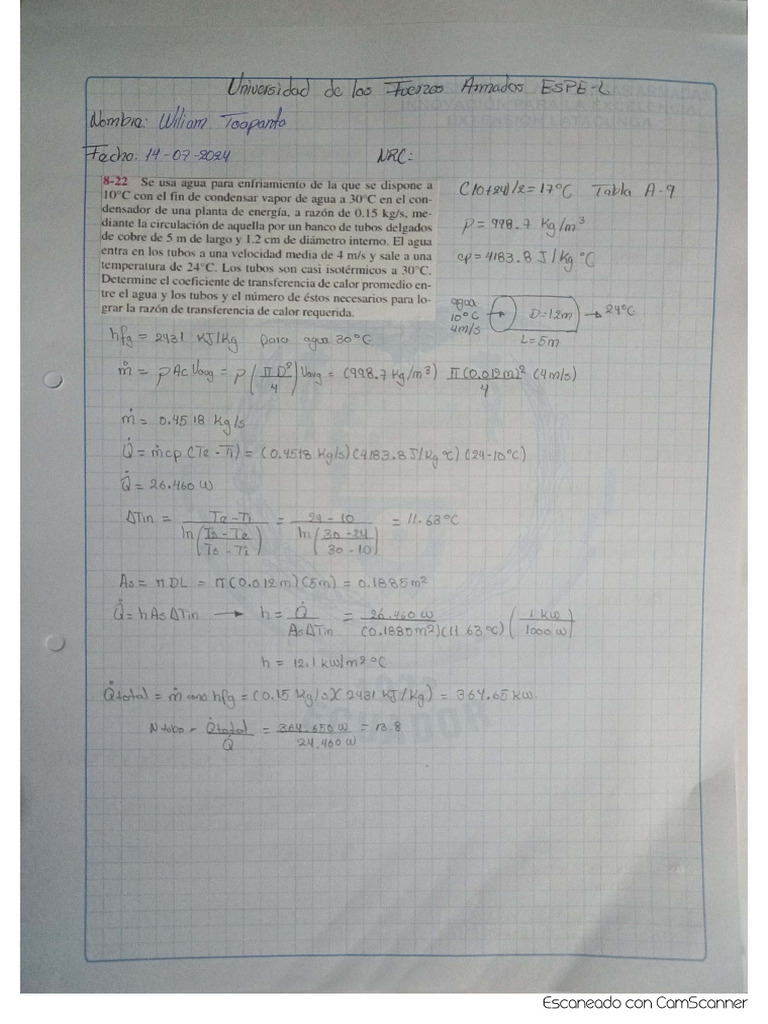 Universidad de las Fuerzas Armadas ESPE-L
Nombre: Wiliam Toapanta
Fecha: 14-07-2024 NRC:
8-22 Se usa agua para enfriamiento de la que se dispone a
10°C con el fin de condensar vapor de agua a 30°C en el con-
densador de una planta de energía, a razón de 0.15 kg/s, me-
diante la circulación de aquella por un banco de tubos delgados
de cobre de 5 m de largo y 1.2 cm de diámetro interno. El agua
entra en los tubos a una velocidad media de 4 m/s y sale a una
temperatura de 24°C. Los tubos son casi isotérmicos a 30°C.
Determine el coeficiente de transferencia de calor promedio en-
tre el agua y los tubos y el número de éstos necesarios para lo-
grar la razón de transferencia de calor requerida.
(10+24)/2=17°C Tabla A-9
ρ= 998.7 Kg/m³
cp=4183.8 J/Kg °C
agua
10°C
4m/s
D=1.2m
24°C
L=5m
hfg = 2431 KJ/Kg para agua 30°C
ṁ = ρAcVavg = ρ(πD²/4)Vavg = (998.7 Kg/m³) π(0.012m)²/4 (4m/s)
ṁ = 0.4518 Kg/s
Q̇ = ṁcp(Te-Ti) = (0.4518 Kg/s)(4183.8J/Kg°C)(24-10°C)
Q̇ = 26.460 W
ΔTin = (Te-Ti)/ln((Ts-Te)/(Ts-Ti)) = (24-10)/ln((30-24)/(30-10)) = 11.63°C
As = πDL = π(0.012m)(5m) = 0.1885m²
Q̇=hAsΔTin → h = Q̇/(AsΔTin) = 26.460 W/((0.1885m²)(11.63°C)) (1 KW/1000 W)
h = 12.1 kw/m²°C
Q̇total = ṁ cond hfg = (0.15 Kg/s)(2431 KJ/Kg) = 364.65 KW.
N tubo = Q̇total/Q̇ = 364.650 W/24.460 W = 13.8
Escaneado con CamScanner